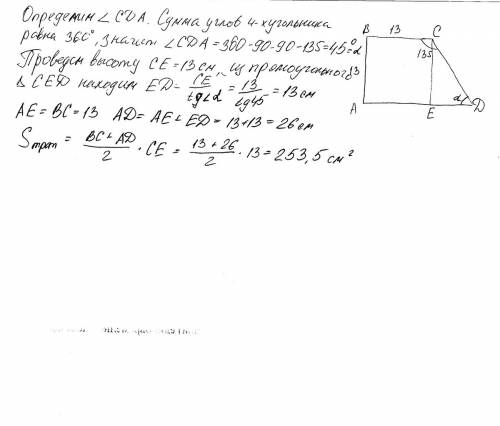 Определим ∠CDA. Сумма углов 4-хугольника
равна 360°, значит ∠CDA = 360-90-90-135=45°=α
Проведем высоту CE = 13 см, из прямоугольного
Δ CED находим ED = CE / tg∠α = 13 / tg45 = 13 см
AE = BC = 13 AD = AE + ED = 13+13 = 26 см
Sтрап = BC + AD / 2 · CE = 13 + 26 / 2 · 13 = 253,5 см²
B 13 C
135
13
α
A E D